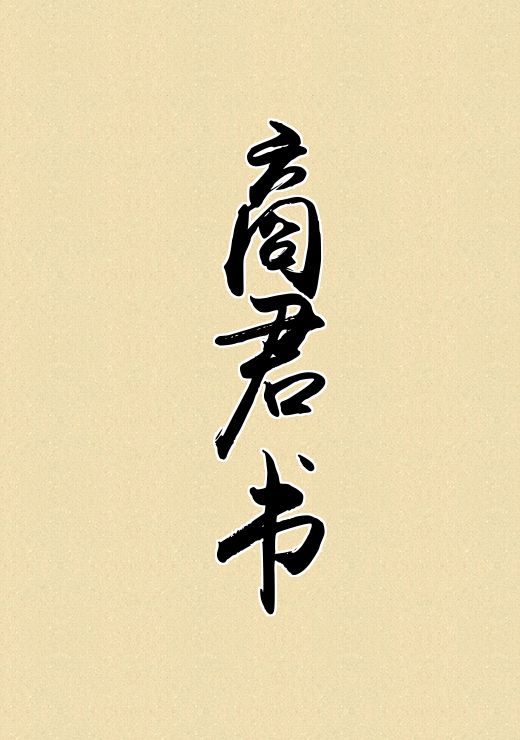 商君书